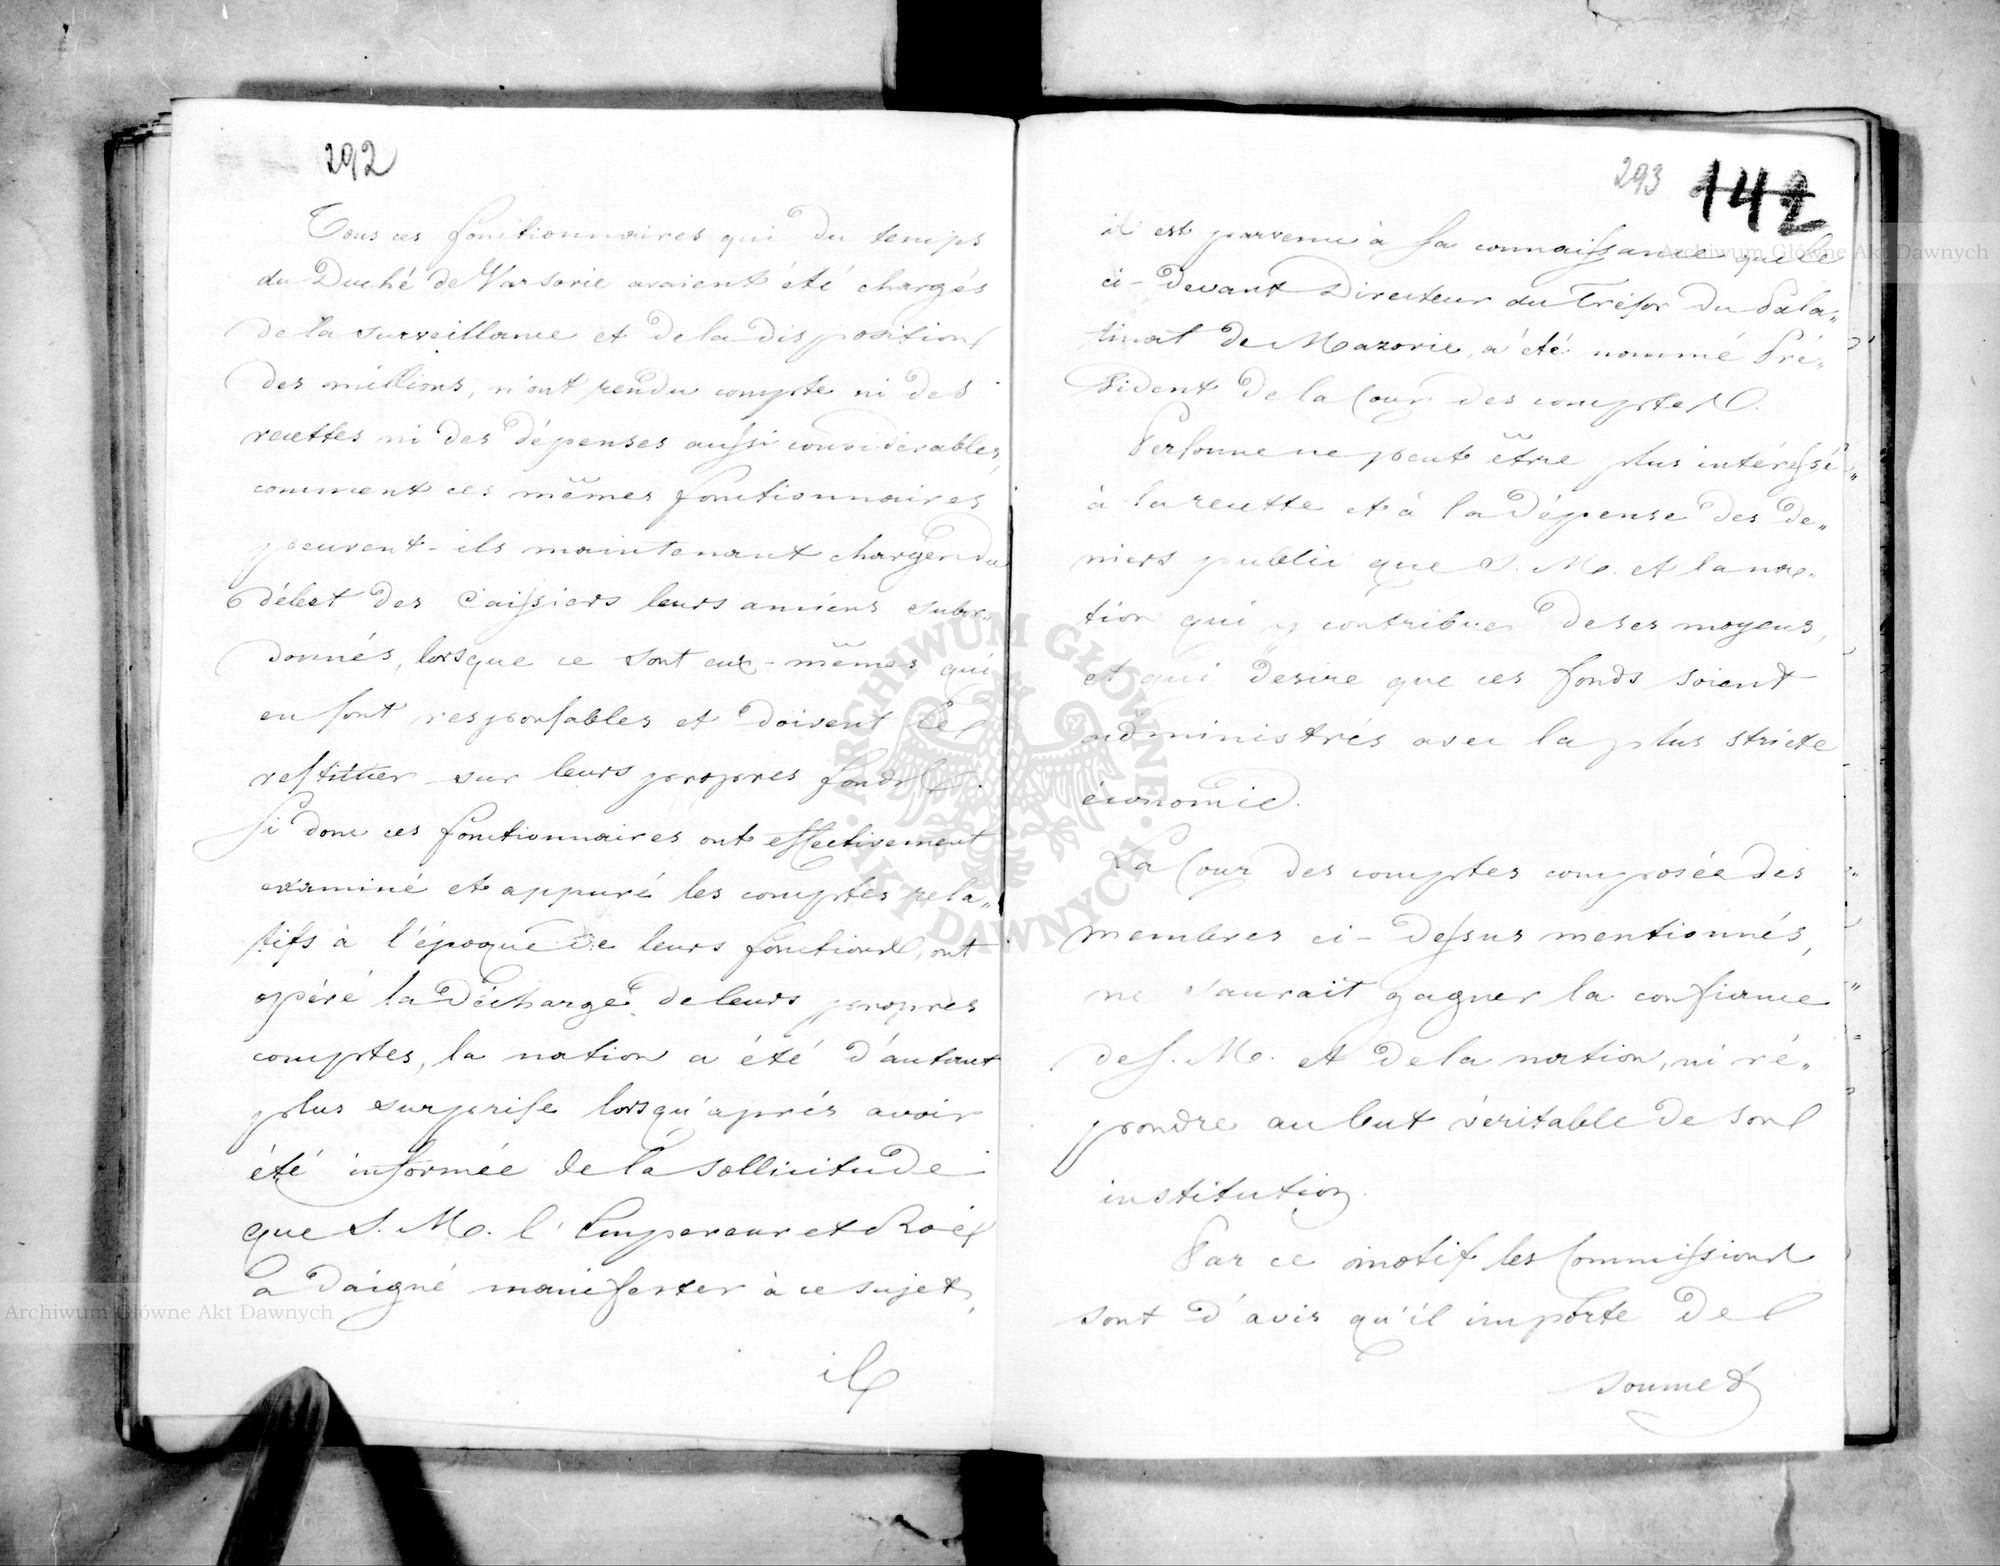 292
Tous ces fonctionnaires qui du temps
du Duché de Varsovie avaient été chargés
de la surveillance et de la disposition
des millions, n'ont rendu compte ni des
recettes ni des dépenses aussi considérables,
comment ces mêmes fonctionnaires
peuvent-ils maintenant charger du
débet des Caissiers leurs anciens subor„
donnés, lorsque ce sont eux-mêmes qui
en sont responsables et doivent le
restituer sur leurs propres fonds.
Si donc ces fonctionnaires ont effectivement
examiné et appuré les comptes rela„
tifs à l'époque de leurs fonctions, ont
opéré la décharge de leurs propres
comptes, la nation a été d'autant
plus surprise lorsqu'après avoir
été informée de la sollicitude
que S. M. l'Empereur et Roi
a daigné manifester à ce sujet,
il
293 142
il est parvenu à sa connaissance que le
ci-devant Directeur du Trésor du Pala„
tinat de Mazovie, a été nommé Pré„
sident de la Cour des comptes.
Personne ne peut être plus intéressé
à la recette et à la dépense des de„
niers public que S. M. et la na„
tion qui y contribue de ses moyens,
et qui desire que ces fonds soient
administrés avec la plus stricte
économie.
La Cour des comptes composée des
membres ci-dessus mentionnés,
ne saurait gagner la confiance
de S. M. et de la nation, ni ré„
pondre au but véritable de son
institution.
Par ce motif les Commissions
sont d'avis qu'il importe de
soumet
Archiwum Główne Akt Dawnych
Archiwum Główne Akt Dawnych
ARCHIWUM GŁÓWNE · AKT DAWNYCH ·